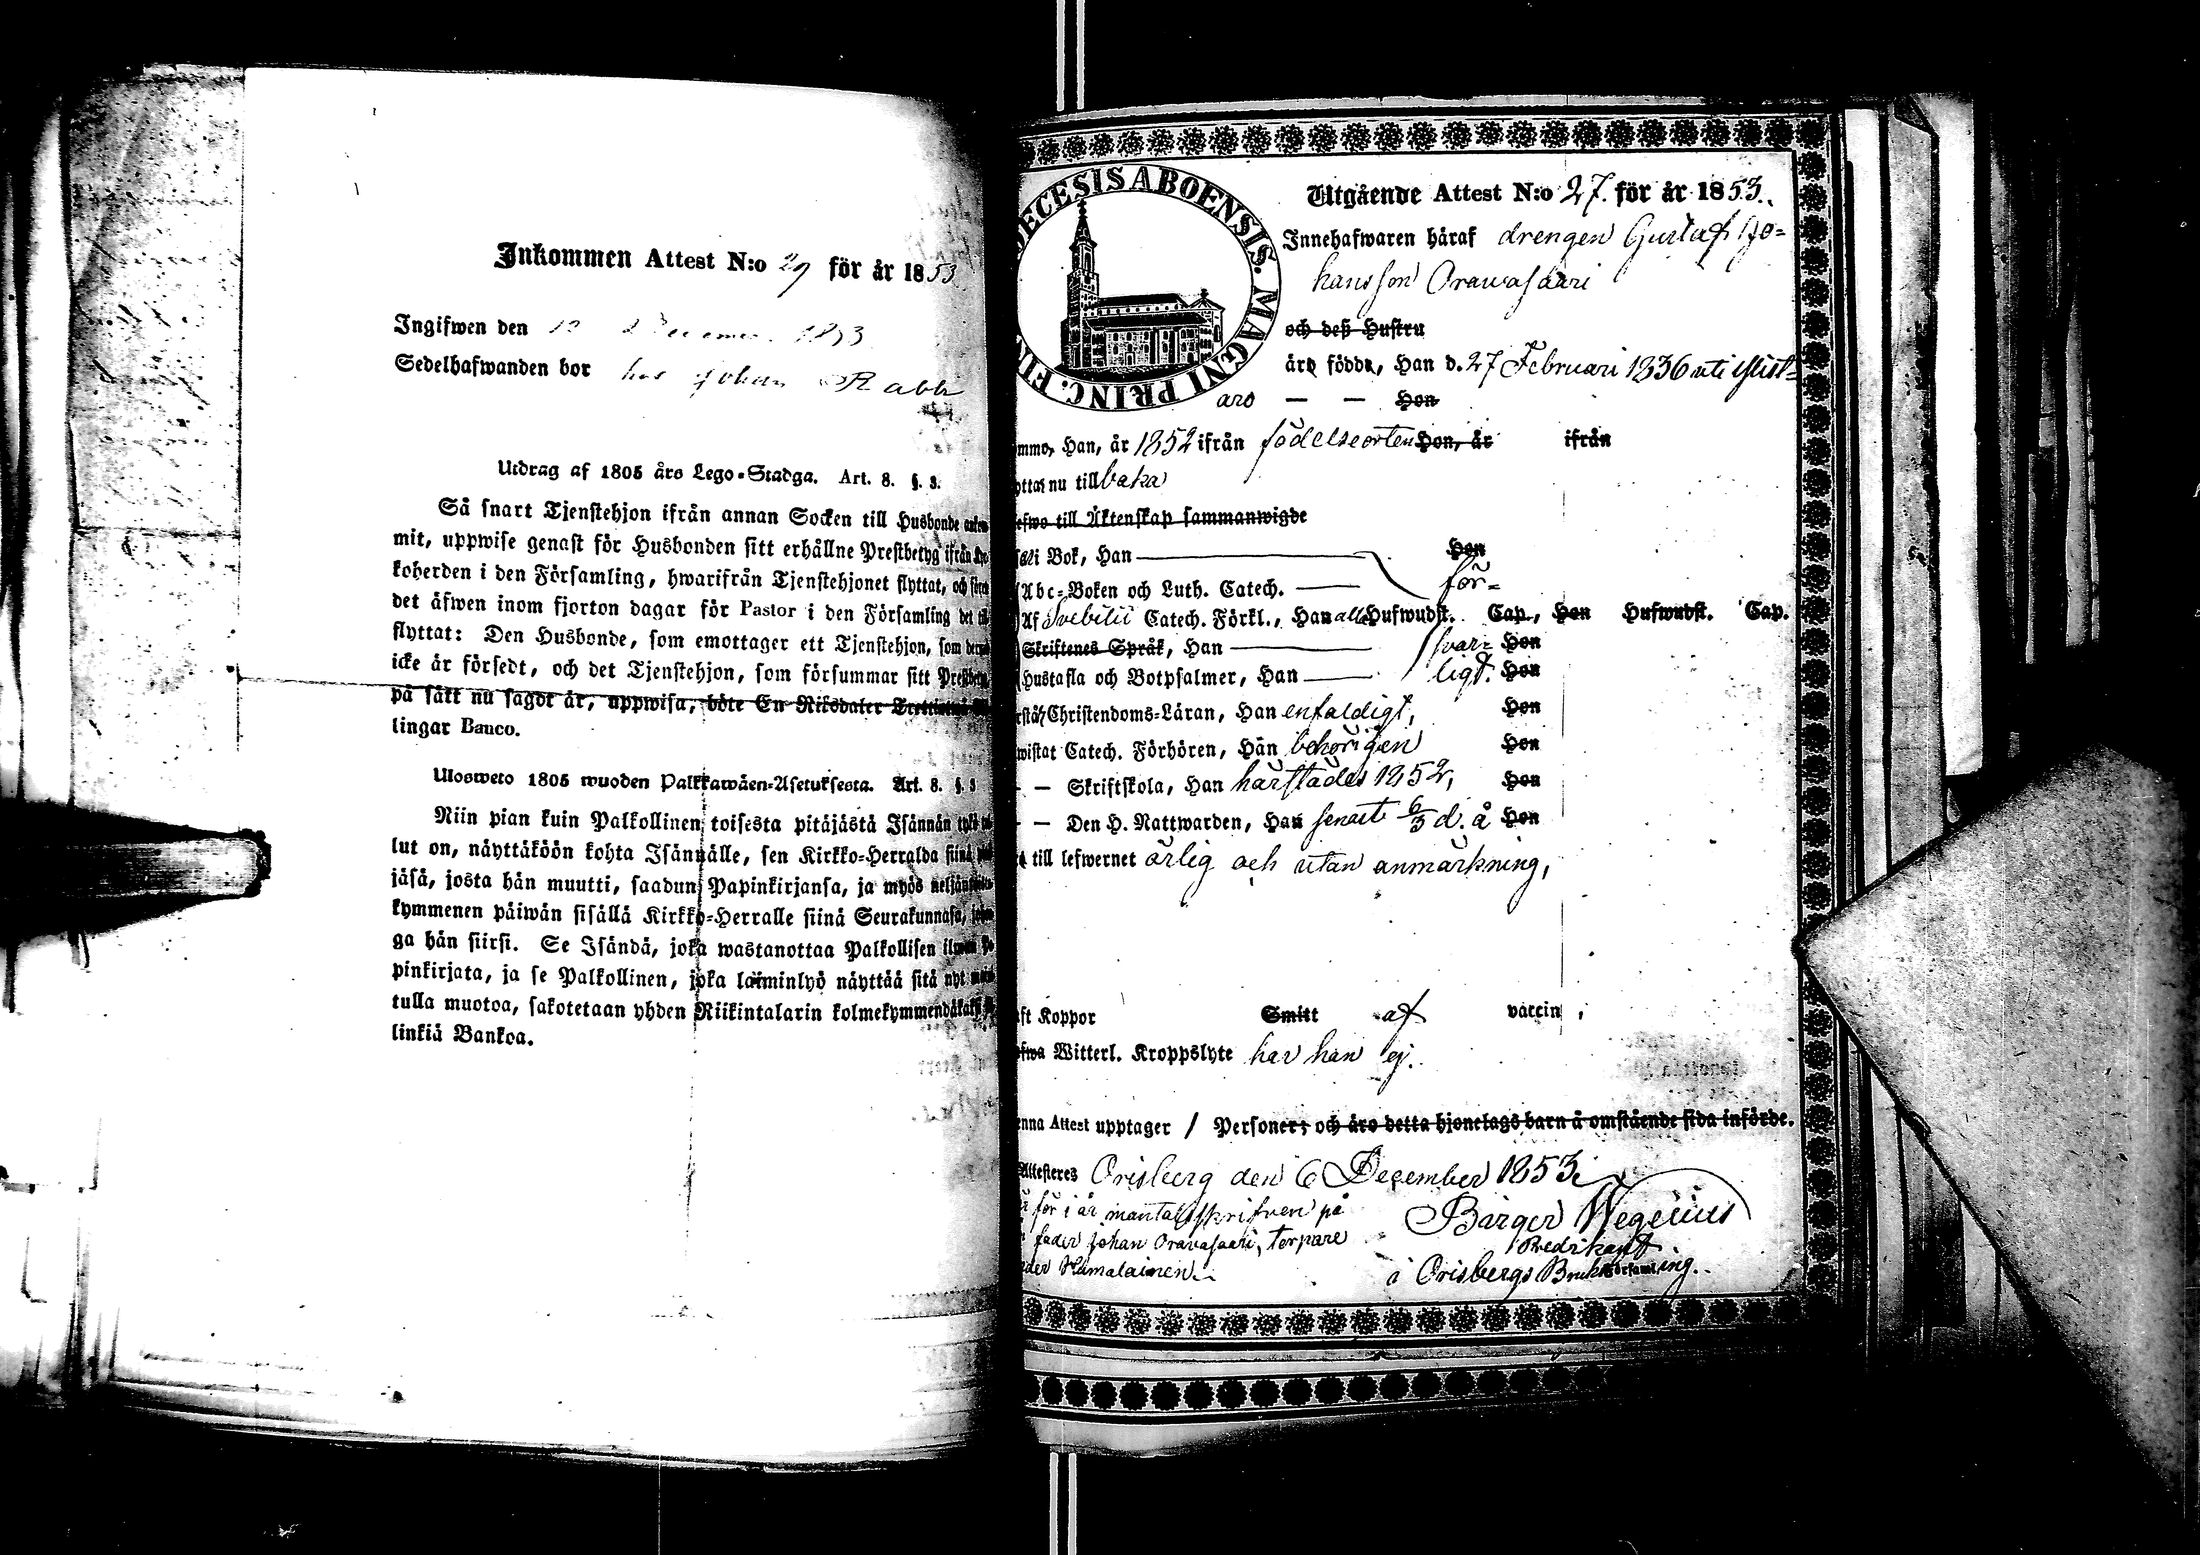 Inkommen Attest N:o 29 för år 1853
Ingifwen den 12 December 1853
Sedelhafwanden bor hos Johan Rabb
Utdrag af 1805 års Lego-Stadga. Art. 8. §. 3.
Så snart Tjenstehjon ifrån annan Socken till Husbonde
mit, uppwise genast för Husbonden sitt erhållne Prestbetyg ifrån
koherden i den Församling, hwarifrån Tjenstehjonet flyttat, och
det äfwen inom fjorton dagar för Pastor i den Församling det
flyttat: Den Husbonde, som emottager ett Tjenstehjon, som
icke är försedt, och det Tjenstehjon, som försummar sitt
på sätt nu sagdt är, uppwisa, böte En Riksdaler
lingar Banco.
Ulosweto 1805 wuoden Palkkawäen-Asetuksesta. Art. 8. §. 3
Niin pian kuin Palkollinen toisesta pitäjästä Isännän
lut on, näyttäköön kohta Isännälle, sen Kirkko-Herralda siinä
jäsä, josta hän muutti, saadun Papinkirjansa, ja myös
kymmenen päiwän sisällä Kirkko-Herralle siinä Seurakunnasa,
ga hän siirsi. Se Isändä, joka wastanottaa Palkollisen ilman
pinkirjata, ja se Palkollinen, joka laiminlyö näyttää sitä nyt
tulla muotoa, sakotetaan yhden Riikintalarin kolmekymmendäkaksi
linkiä Bankoa.
DECESIS ABOENSIS. MAGNI PRINC. FIN
Utgående Attest N:o 27. för år 1853.
Innehafwaren häraf drengen Gustaf Jo-
hansson Orawasaari
och deß Hustru
äro födde, Han d. 27 Februari 1836 uti
aro — — Hon
mmo, Han, år 1852 ifrån födelseorten Hon, år ifrån
ttar nu till baka
efwo till Äktenskap sammanwigde
i Bok, Han Hon
Abc-Boken och Luth. Catech. för-
Af Svebilii Catech. Förkl., Han alla Hufwudst. Cap., Hon Hufwudst. Cap.
Skriftenes Språk, Han svar- Hon
Hustafla och Botpsalmer, Han ligt. Hon
Christendoms-Läran, Han enfaldigt, Hon
wistat Catech. Förhören, Han behörigen Hon
— — Skriftskola, Han härstädes 1852, Hon
— — Den H. Nattwarden, Han senast 6/3 d. å Hon
till lefwernet ärlig och utan anmärkning,
ft Koppor Smitt af vaccin,
efwa Witterl. Kroppslyte har han ej.
enna Attest upptager 1 Personer; och äro detta hjonelags barn å omstående sida införde.
Attesteres Orisberg den 6 December 1853.
för i år mantalsskrifven på
fader Johan Oravasaari, torpare
der Hämäläinen.
Barger Wegelius
Predikant
å Orisbergs Bruksförsamling.